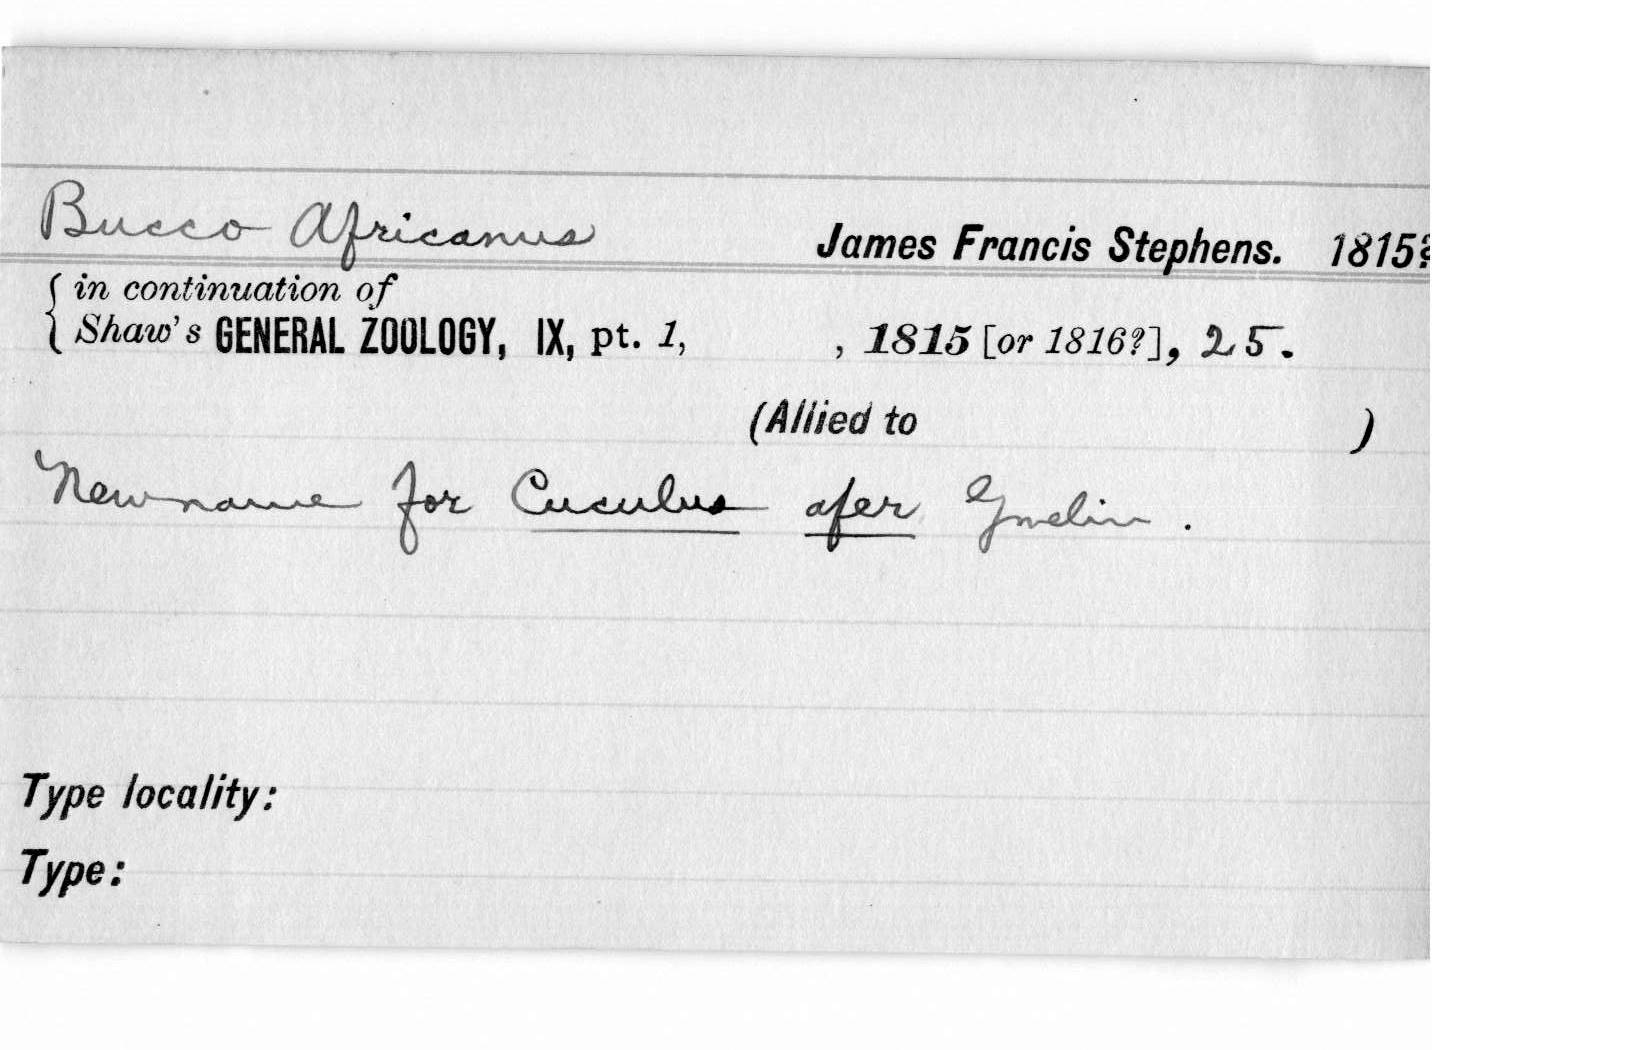 Bucco Africanus James Francis Stephens. 1815?
{ in continuation of
Shaw's GENERAL ZOOLOGY, IX, pt. 1, , 1815 [or 1816?], 25.
(Allied to )
New name for Cuculus afer Gmelin.
Type locality:
Type: